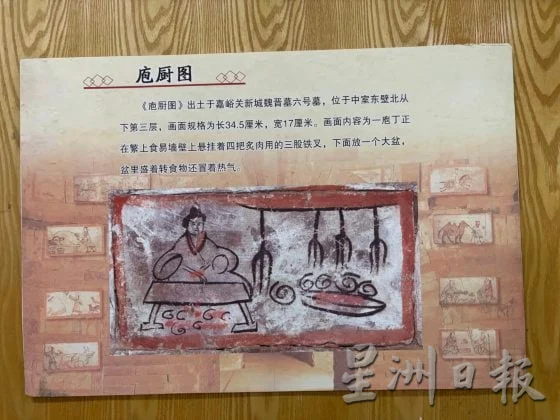 庖厨图
《庖厨图》出土于嘉峪关新城魏晋墓六号墓，位于中室东壁北从
下第三层，画面规格为长34.5厘米，宽17厘米。画面内容为一庖丁正
在繁上食易墙壁上悬挂着四把炙肉用的三股铁叉，下面放一个大盆，
盆里盛着转食物还冒着热气。
星洲日报